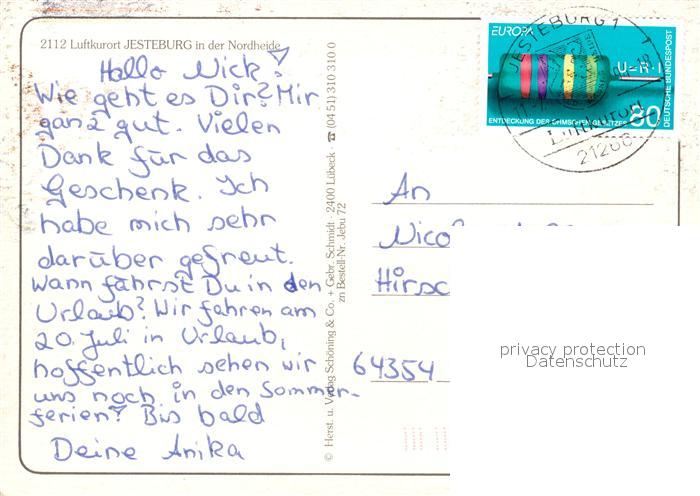 2112 Luftkurort JESTEBURG in der Nordheide
Hallo Nick!
Wie geht es Dir? Mir
ganz gut. Vielen
Dank für das
Geschenk. Ich
habe mich sehr
darüber gefreut.
Wann fährst Du in den
Urlaub? Wir fahren am
20. Juli in Urlaub,
hoffentlich sehen wir
uns noch in den Sommer-
ferien? Bis bald
Deine Anika
© Herst. u. Verlag Schöning & Co. + Gebr. Schmidt · 2400 Lübeck · ☎ (04 51) 310 310 0
zu Bestell-Nr. Jebu 72
EUROPA
U=R·I
DEUTSCHE BUNDESPOST
ENTDECKUNG DES OHMSCHEN GESETZES 80
JESTEBURG 1
Luftkurort
21266
An
Nico
Hirsc
64354
privacy protection
Datenschutz